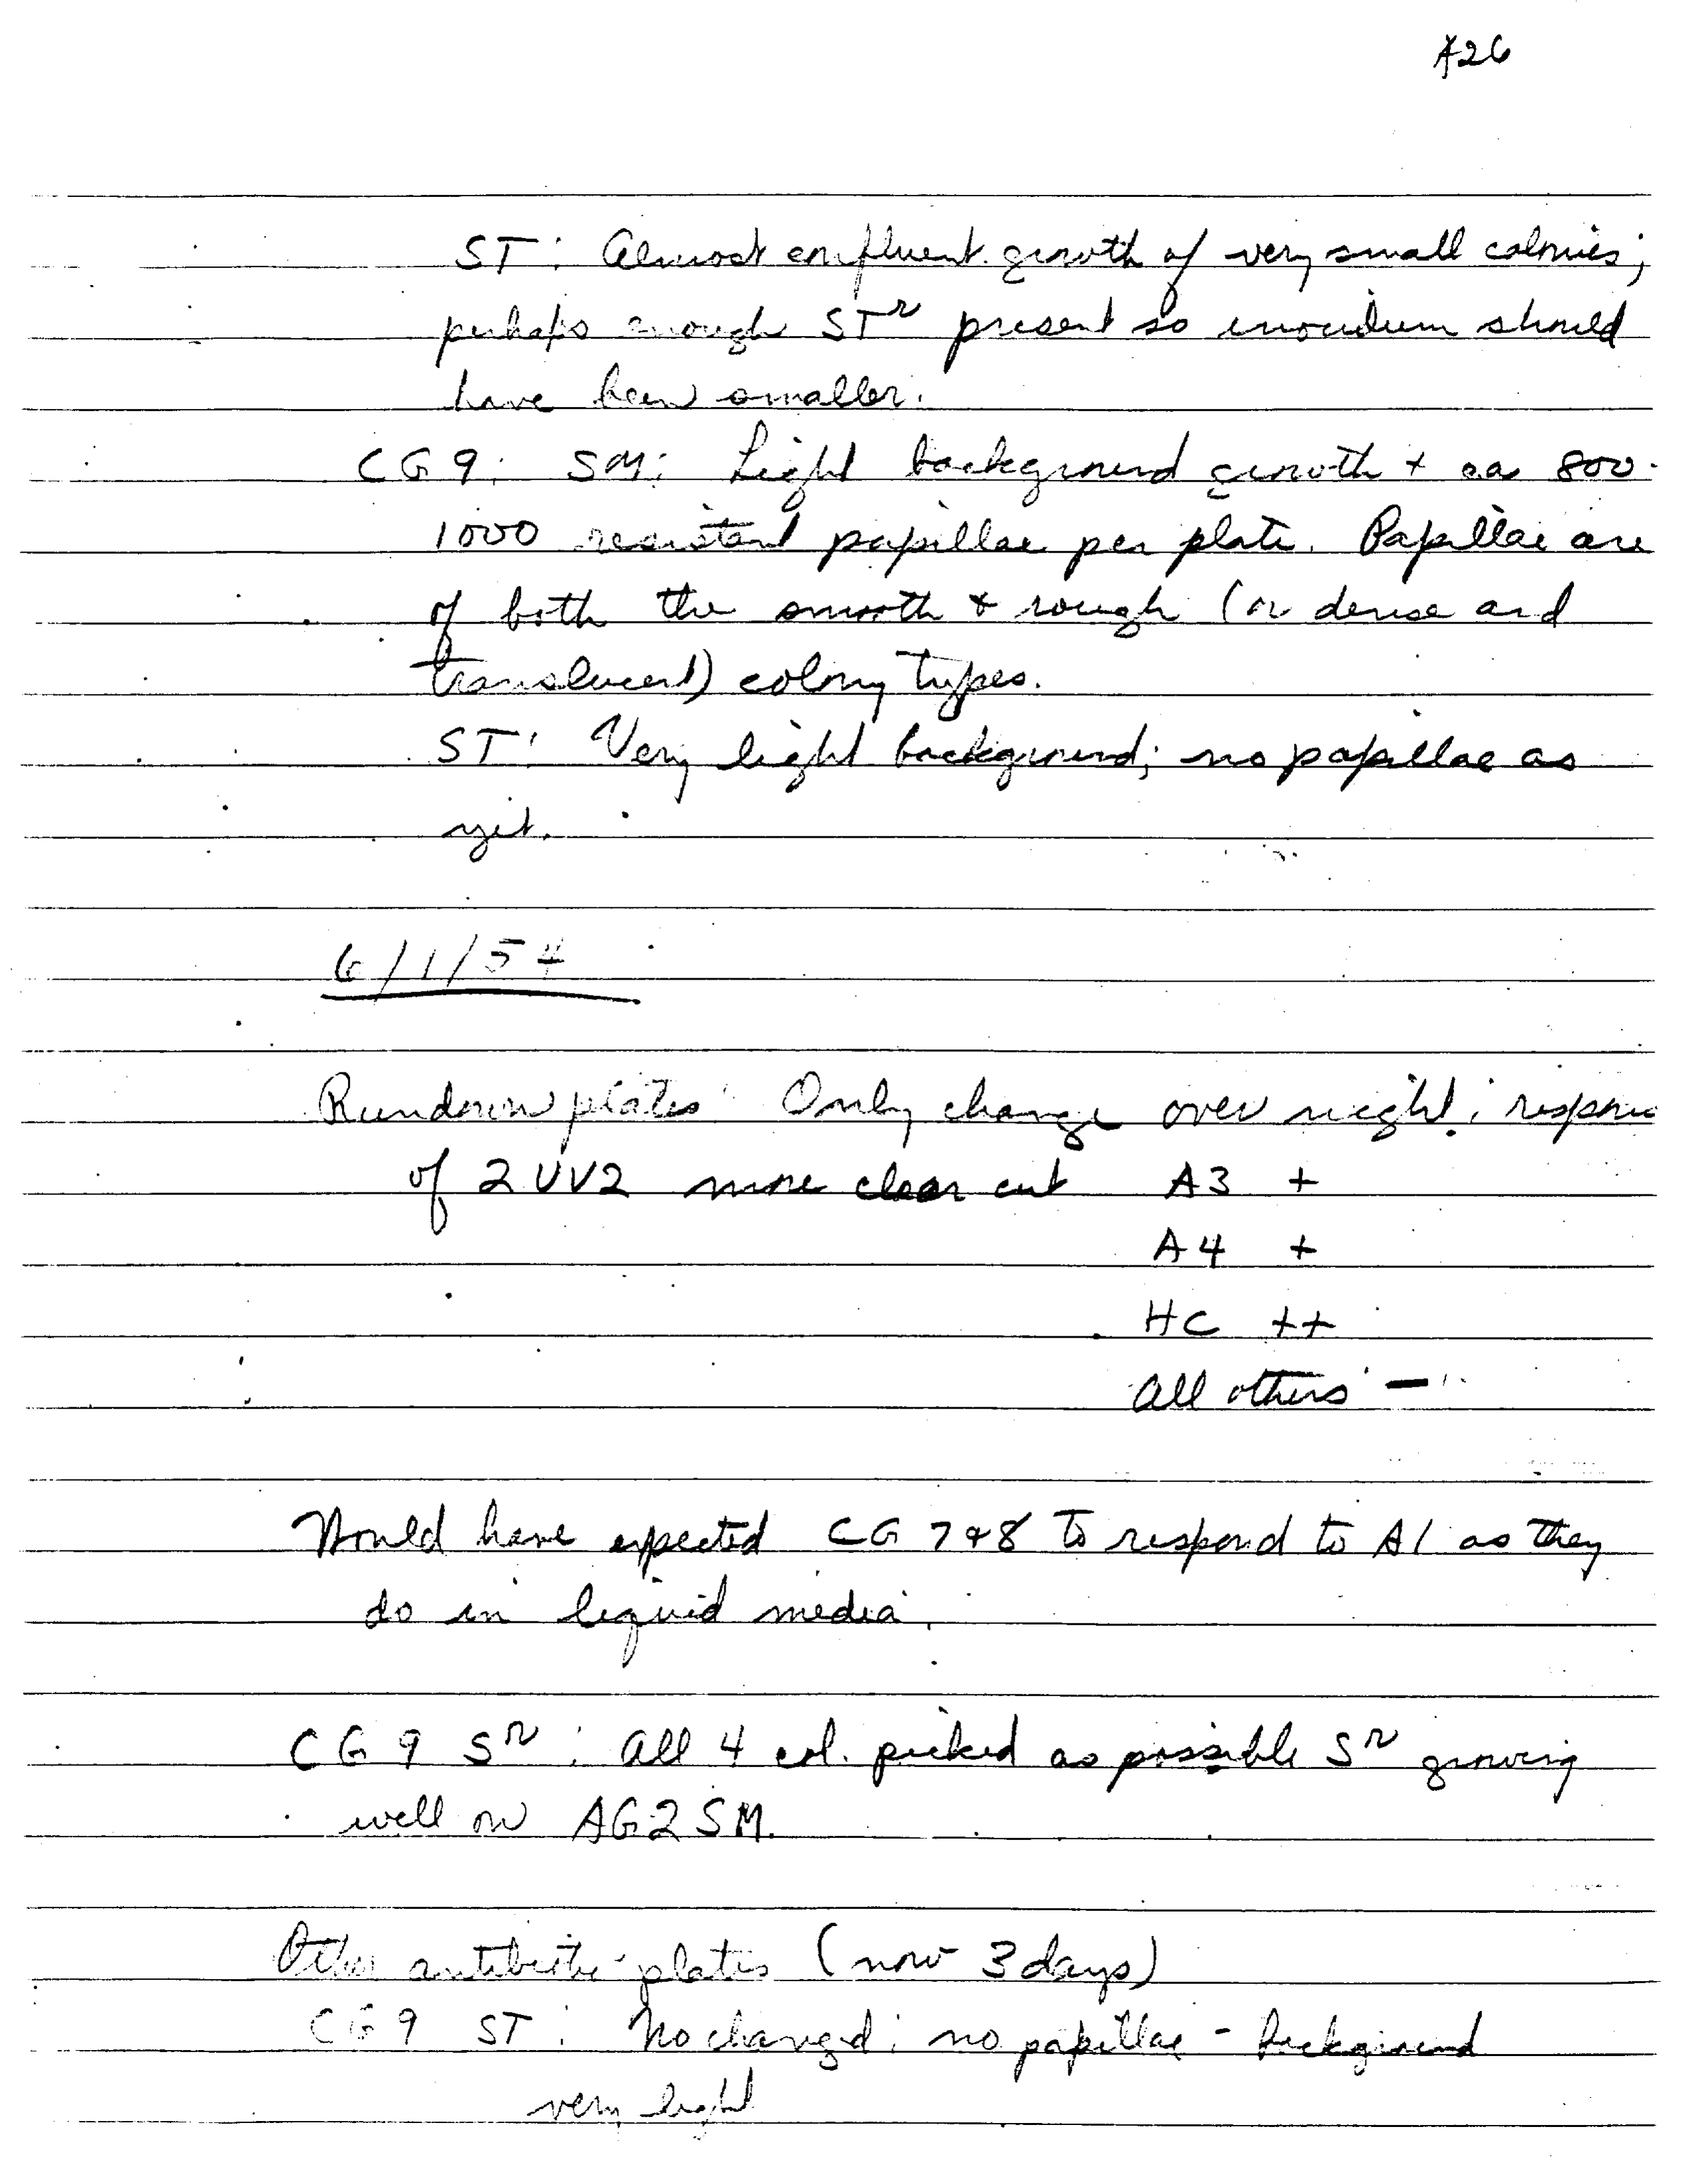 A26
ST: Almost confluent growth of very small colonies;
perhaps enough STʳ present so inoculum should
have been smaller.
CG9: SM: Light background growth + ca 800-
1000 resistant papillae per plate. Papillae are
of both the smooth & rough (or dense and
translucent) colony types.
ST: Very light background; no papillae as
yet.
6/1/54
Rundown plates: Only change over night: response
of 2UV2 more clear cut A3 +
A4 +
HC ++
All others –
Would have expected CG 7 & 8 to respond to A1 as they
do in liquid media.
CG 9 Sʳ: All 4 col. picked as possible Sʳ growing
well on AG2SM.
Other antibiotic plates (now 3 days)
CG9 ST: No changed: no papillae - background
very light